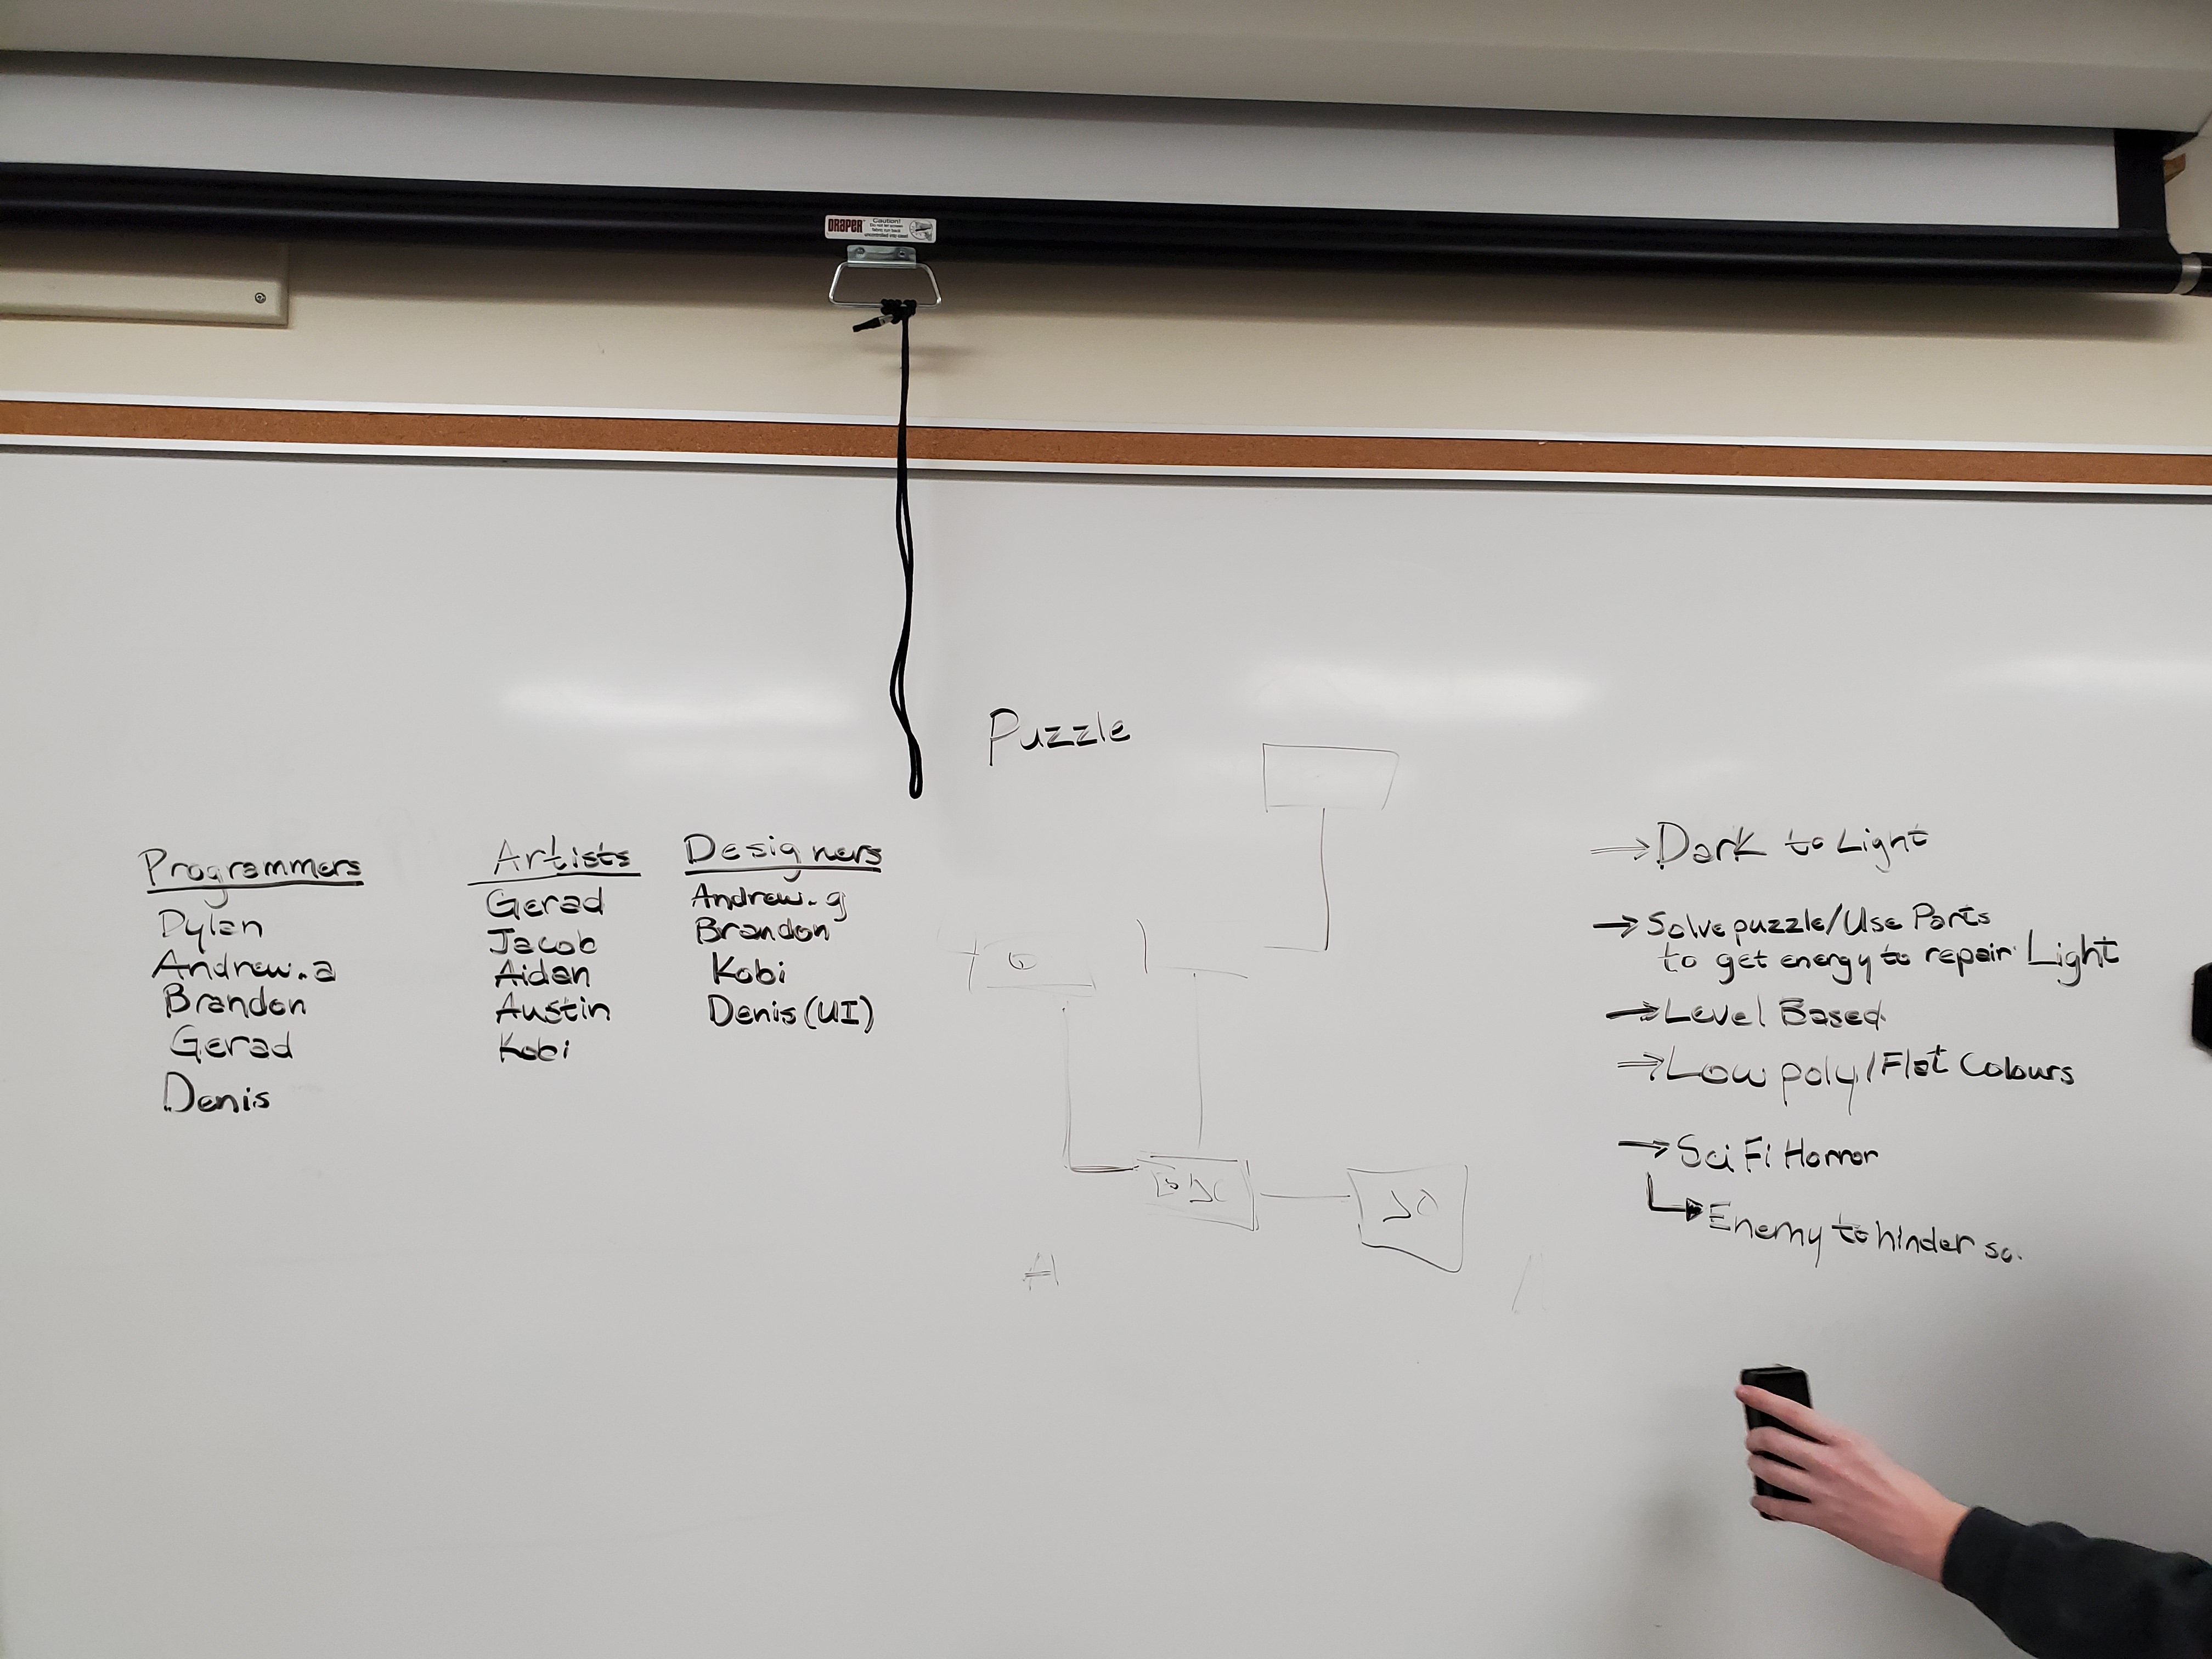 DRAPER
Caution!
Puzzle
Programmers
Dylan
Andrew.a
Brandon
Gerad
Denis
Artists
Gerad
Jacob
Aidan
Austin
Kobi
Designers
Andrew.g
Brandon
Kobi
Denis (UI)
A
→ Dark to Light
→ Solve puzzle/Use Parts
to get energy to repair Light
→ Level Based
→ Low poly/Flat Colours
→ Sci Fi Horror
Enemy to hinder